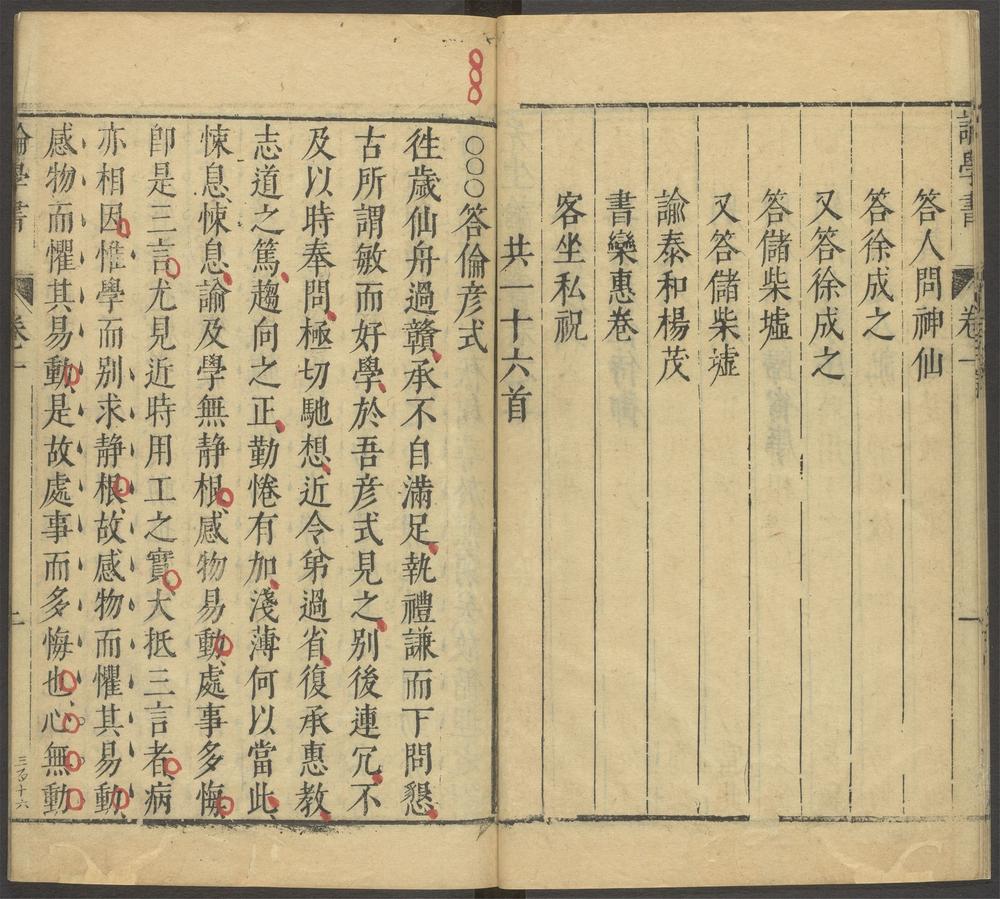 論學書 卷一 一
答人問神仙
答徐成之
又答徐成之
答儲柴墟
又答儲柴墟
諭泰和楊茂
書欒惠卷
客坐私祝
共一十六首
○○○答倫彦式
徃歲仙舟過贛承不自滿足執禮謙而下問懇
古所謂敏而好學於吾彦式見之别後連冗不
及以時奉問極切馳想近令弟過省復承惠教
志道之篤趨向之正勤惓有加淺薄何以當此
悚息悚息諭及學無静根感物易動處事多悔
卽是三言尤見近時用工之實大抵三言者病
亦相因惟學而别求静根故感物而懼其易動
感物而懼其易動是故處事而多悔也心無動
論學書 卷一 二
三百十六